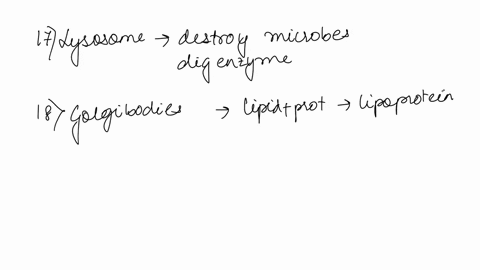 17) Lysosome → destroy microbes
dig enzyme
18) Golgibodies → lipid+prot → lipoprotein